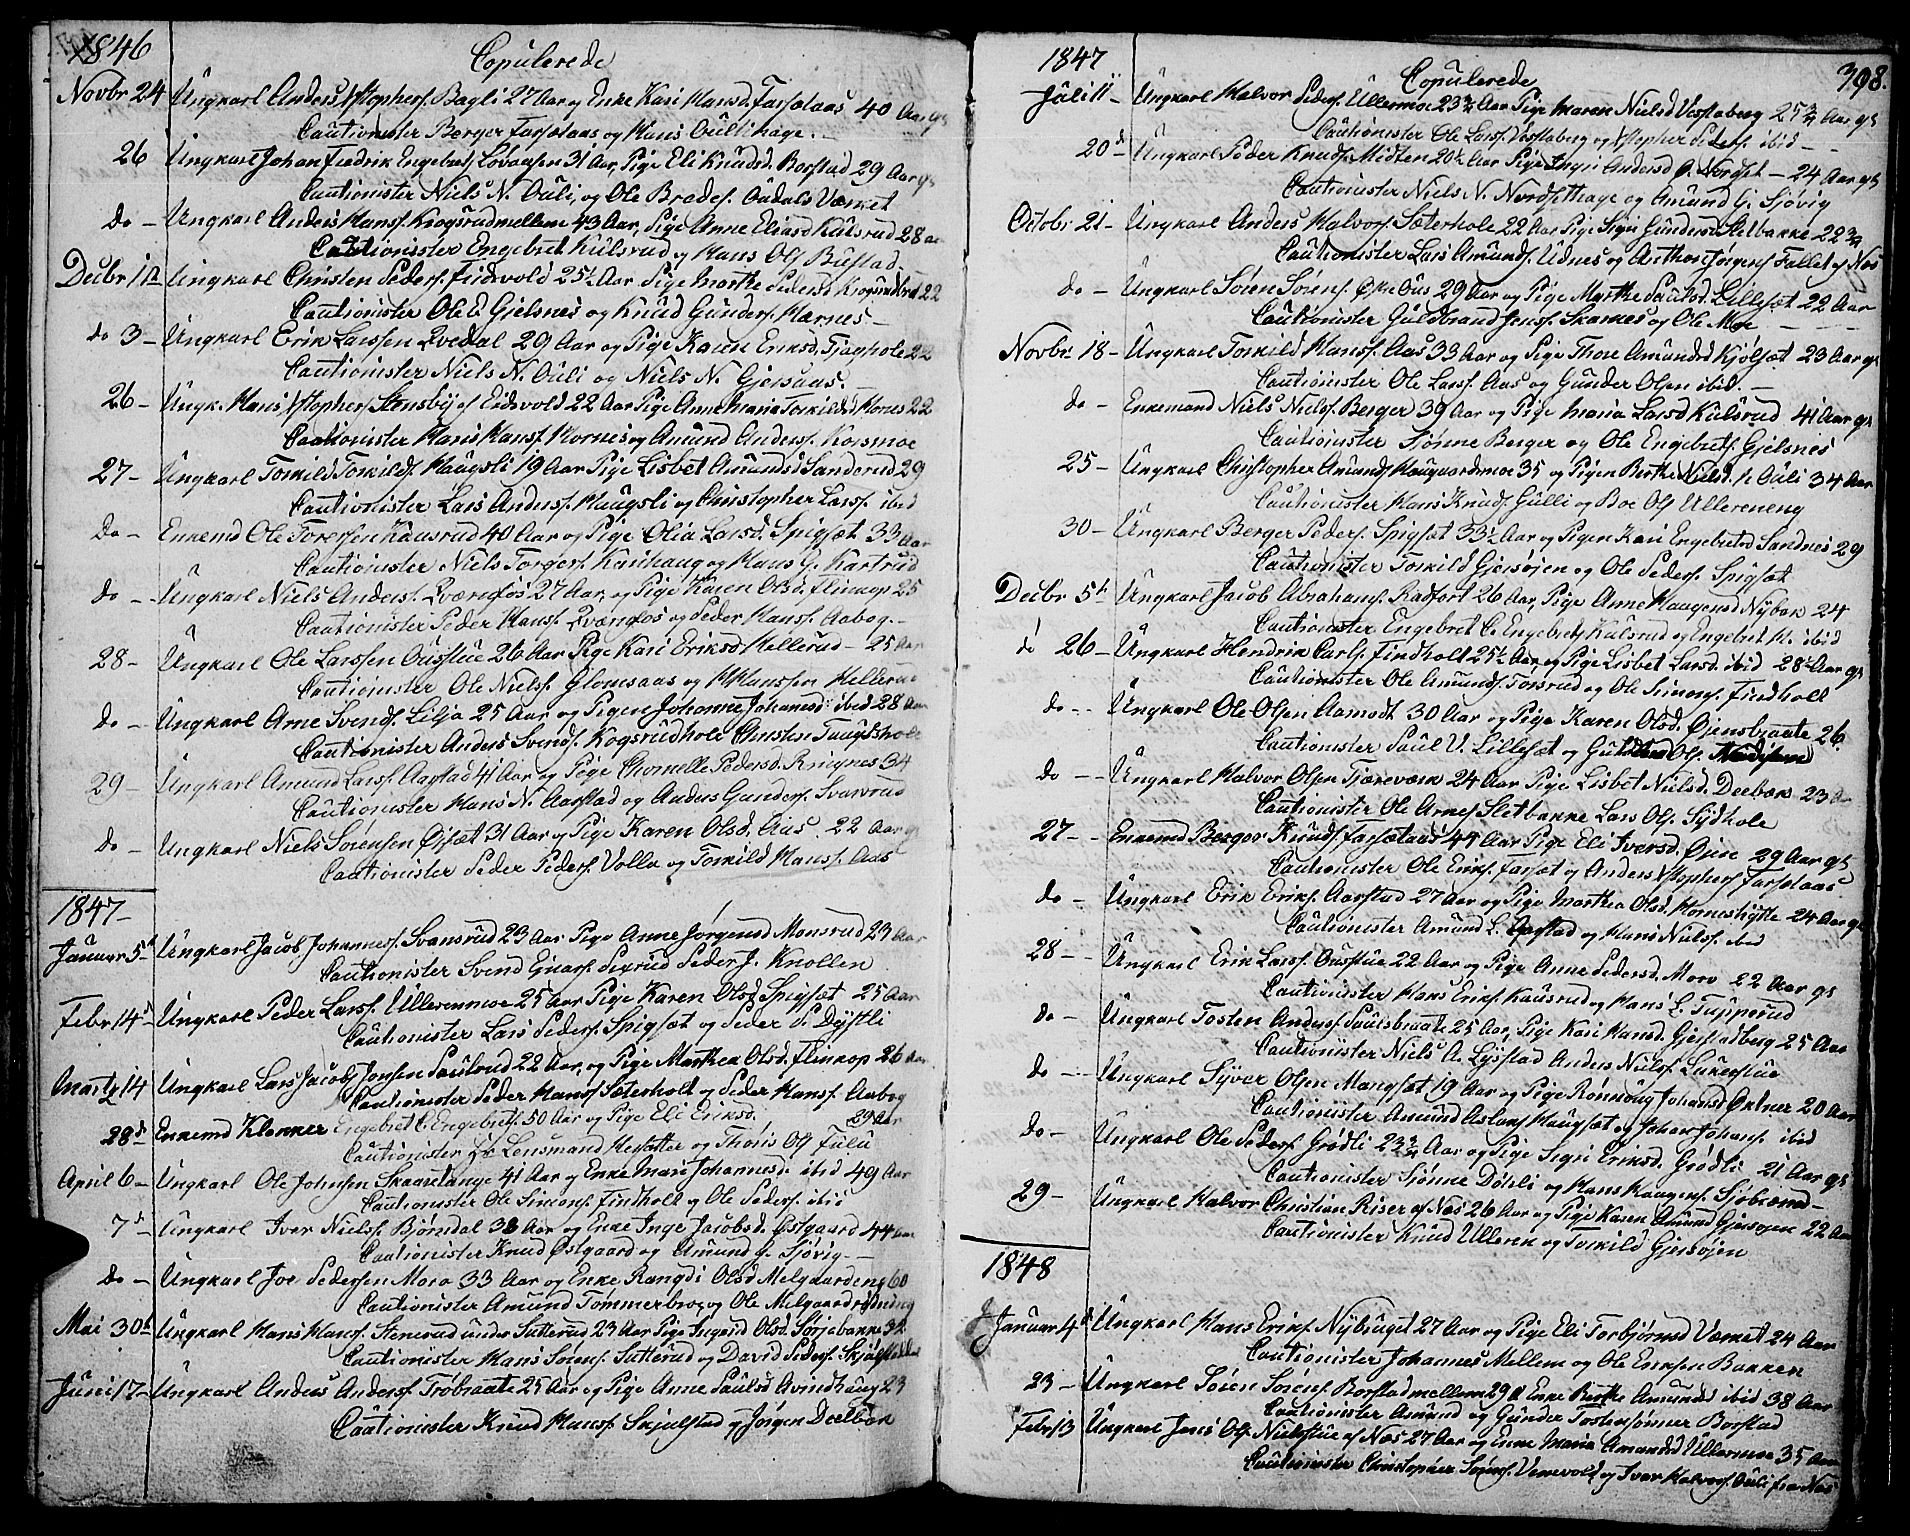 1846
Copulerede
Novbr 24 Ungkarl Anders Kstophers. Bagli 27 Aar og Enke Kari Hansd. Farsetaas 40 Aar gs
Cautionister Berger Farsetaas og Hans Oulihage.
26 Ungkarl Johan Fredrik Engebret Lövaasen 31 Aar, Pige Eli Knudsd. Borstad 29 Aar gs
Cautionister Niels N. Ouli, og Ole Bredes. Oudals Værket
do - Ungkarl Anders Hans. Krogsrudmellem 43 Aar, Pige Anne Eliasd Kulsrud 28
Cautionister Engebret Kulsrud og Hans Ols. Bustad
Decbr 1 Ungkarl Christen Peders. Eidsvold 25½ Aar Pige Marthe Pedersd 22
Cautionister Ole E Gjelsnes og Knud Gunders. Harnes -
do 3 - Ungkarl Erik Larssen Qvedal 29 Aar og Pige Karen Eriksd. 22
Cautionister Niels N. Ouli og Niels N. Gjersaas.
26 - Ungk. Hans Kstophers. Stensby af Eidsvold 22 Aar Pige Anne Maria Torkildsd Hornes 22
Cautionister Hans Hans. Hornes og Amund Anders. Korsmoe
27 - Ungkarl Torkild Torkilds. Haugsli 19 Aar Pige Lisbet Amundsd Sanderud 29
Cautionister Lars Anders. Haugsli og Christopher Lars. ibid
do - Enkemd Ole Toresen Kausrud 40 Aar og Pige Olia Larsd. Spigset 33 Aar
Cautionister Niels Torgers. Knihaug og Hans G. Kartrud
do - Ungkarl Niels Anders. Qværnfos 27 Aar, og Pige Karen Olsd. Flinkop 25
Cautionister Peder Hans. Qværnfos og Peder Hans. Aabog.
28 - Ungkarl Ole Larssen Oustue 26 Aar Pige Kari Eriksd Hellerud - 25 Aar
Cautionister Ole Niels. Glomsaas og H Hanssen Hellerud
do - Ungkarl Arne Svends. Lilja 25 Aar og Pigen Johanne Johansd: ibid 28 Aar
Cautionister Anders Svends. Kogsrudhole Christen
29 - Ungkarl Amund Lars. Aarstad 41 Aar og Pige Thornelle Pedersd. Ringnes 34
Cautionister Hans N. Aarstad og Anders Gunders. Svarsrud
do - Ungkarl Niels Sörensen Öiset 31 Aar og Pige Karen Olsd. Aas. 22 Aar gs
Cautionister Peder Peders. Volla og Torkild Hans. Aas
1847 -
Januar 5 Ungkarl Jacob Johannes. Svansrud 23 Aar Pige Anne Jörgensd Monsrud 23 Aar
Cautionister Svend Einars. Sigrud Peder J. Knollen
Febr 14 Ungkarl Peder Lars. Ullerenmoe 25 Aar Pige Karen Olsd. Spigset 25 Aar
Cautionister Lars Peders. Spigset og Peder P. Dystli
Martz 14 Ungkarl Lars Jacob Jonsen Paulrud 22 Aar, og Pige Marthea Olsd. Flinkop 26 Aar
Cautionister Peder Hans. Sæterholt og Peder Hans. Aabog
28 Enkemd Klokker Engebret C. Engebrets. 50 Aar og Pige Eli Eriksd. 39 Aar
Cautionister Lensmand og Thöris Ols. Fulu
April 6 - Ungkarl Ole Johnsen Skaaretange 41 Aar og Enke Mari Johannesd. ibid 49 Aar
Cautionister Ole Simons. Findholt og Ole Peders. ibid
7 Ungkarl Iver Niels. Björndal 38 Aar og Enke Inge Jacobsd. Östgaard 44 Aar
Cautionister Knud Östgaard og Amund G. Sjövig -
do - Ungkarl Joe Pedersen Mora 33 Aar og Enke Rangdi Olsd Melgaardeng 60
Cautionister Amund Tömmerbroe og Ole
Mai 30 Ungkarl Hans Hans. Stenerud under Sutterud 23 Aar Pige Ingrid Olsd. Sörjebakke 32
Cautionister Hans Sörens. Sutterud og David Peders.
Juni 17 - Ungkarl Anders Anders. Tröbraate 25 Aar og Pige Anne Paulsd Avindhaug 23
Cautionister Knud Hans. Skjulstad og Jörgen Doelbæk
1847
Copulerede
398.
Juli 11 - Ungkarl Halvor Peders. Ullermoe 23¾ Aar Pige Maren Nielsd Vestaberg 25¾ Aar gs
Cautionister Ole Lars. Vestaberg og Kstopher Peders. ibid -
20 Ungkarl Peder Knuds. Midten 20½ Aar Pige Ingri Andersd Ö. Nordset - 24 Aar gs
Cautionister Niels N. Nordsethage og Amund G. Sjövig
Octobr 21 - Ungkarl Anders Halvors. Sæterhole 22 Aar Pige Sigri Gundersd Sletbakke 22¾
Cautionister Lars Amunds. Udnes og Anthon Jörgens. Fallet af Næs
do - Ungkarl Sören Sörens. Öst Ous 29 Aar og Pige Myrthe Paulsd. Lilleset 22 Aar
Cautionister Guldbrand Jens. Skarnes og Ole Moe
Novbr 18 - Ungkarl Torkild Hans. Aas 33 Aar og Pige Thore Amundsd Kjölset 23 Aar gs
Cautionister Ole Lars. Aas og Gunder Olsen ibid. -
do - Enkemand Niels Niels. Berger 39 Aar og Pige Maria Larsd Kulsrud 41 Aar gs
Cautionister Sjönne Berger og Ole Engebrets. Gjelsnes
25 - Ungkarl Christopher Amunds. Haugaardsmoe 35 og Pigen Berthe Nielsd. N. Ouli 34 Aar
Cautionister Hans Knuds. Gulli og Boe Ols. Ullereneng
30 - Ungkarl Berger Peders. Spigset 33½ Aar og Pigen Kari Engebretsd Sandnes 29
Cautionister Torkild Gjersöjen og Ole Peders. Spigset
Decbr 5 Ungkarl Jacob Abrahams. Radfort 26 Aar, Pige Anne Haagensd Nybak 24
Cautionister Engebret C. Engebrets. Kulsrud og Engebret H. ibid
26 - Ungkarl Hendrik Carls. Findholt 25½ Aar og Pige Lisbet Larsd. ibid 28½ Aar gs
Cautionister Ole Amunds. Torsrud og Ole Simons. Findholt
do - Ungkarl Ole Olsen Aamodt 30 Aar og Pige Karen Olsd. Öjensbraate 26
Cautionister Paul V. Lilleset og Ols.
do - Ungkarl Halvor Olsen Tjærevæn 24 Aar Pige Lisbet Nielsd. Deebæk 23 A
Cautionister Ole Arnes. Sletbakke Lars Ols. Sydhole
27 - Enkemd Berger Knuds. Farsetaas 44 Aar Pige Eli Iversd. Öjse 29 Aar gs
Cautionister Ole Eriks. Farset og Anders Kstophers. Farsetaas
do - Ungkarl Erik Eriks. Aarstad 27 Aar og Pige Marthea Olsd. Horneshytte 24 Aar gs
Cautionister Amund L. Aarstad og Hans Niels. ibid
28 - Ungkarl Erik Lars. Oustue 22 Aar og Pige Anne Pedersd. Moro 22 Aar gs
Cautionister Hans Eriks. Kausrud og Hans L. Tupperud
do - Ungkarl Tosten Anders. Paulsbraate 25 Aar, Pige Kari Hansd. Gjerstadberg 25 Aar
Cautionister Niels A. Lystad Anders Niels. Lukestue
do - Ungkarl Syver Olsen Mangset 19 Aar og Pige Rönnoug Johansd Oktner 20 Aar
Cautionister Amund Aslons. Haugset og Johan Johans. ibid
do - Ungkarl Ole Peders. Grödli 23¾ Aar og Pige Sigri Eriksd. Grödli 21 Aar gs
Cautionister Sjönne Dölsli og Hans Haagens. Sjöbrænd
29 - Ungkarl Halvor Christian Riser af Næs 26 Aar og Pige Karen Amund Gjersöjen 22 Aar
Cautionister Knud Ulleren og Torkild Gjersöjen
1848
Januar 4 Ungkarl Hans Eriks. Nybruget 27 Aar og Pige Eli Torbjörnsd Værket 24 Aar
Cautionister Johannes Mellem og Ole Eriksen Bakken
23 - Ungkarl Sören Sörens. Borstadmellem 29 A Enke Berthe Amundsd ibid 38 Aar
Cautionister Amund og Gunder Tostensönner Borstad
Febr 13 Ungkarl Jens Ols. Nielstue af Næs 27 Aar og Enke Maria Amundsd Ullermoe 35 Aar
Cautionister Christopher Sörens. Vennevold og Iver Halvors. Ouli fra Næs